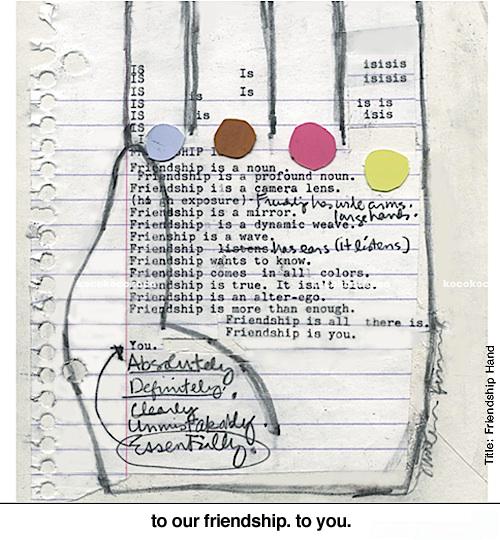 IS
IS
Is
isisis
isisis
IS
Is
IS
is
is is
IS
is
isis
IS
IS
Friendship is a noun
Friendship is a profound noun.
Friendship is a camera lens.
exposure) - Friendship has wide arms.
large hands.
Friendship is a mirror.
Friendship is a dynamic weave.
Frienship is a wave.
Friendship listens has ears (it listens)
Friendship wants to know.
Friendship comes in all colors.
Friendship is true. It isn't blue.
Friendship is an alter-ego.
Friendship is more than enough.
Friendship is all there is.
Friendship is you.
You.
Absolutely.
Definitely.
Clearly
Unmistakably.
Essentially.
Title: Friendship Hand
to our friendship. to you.